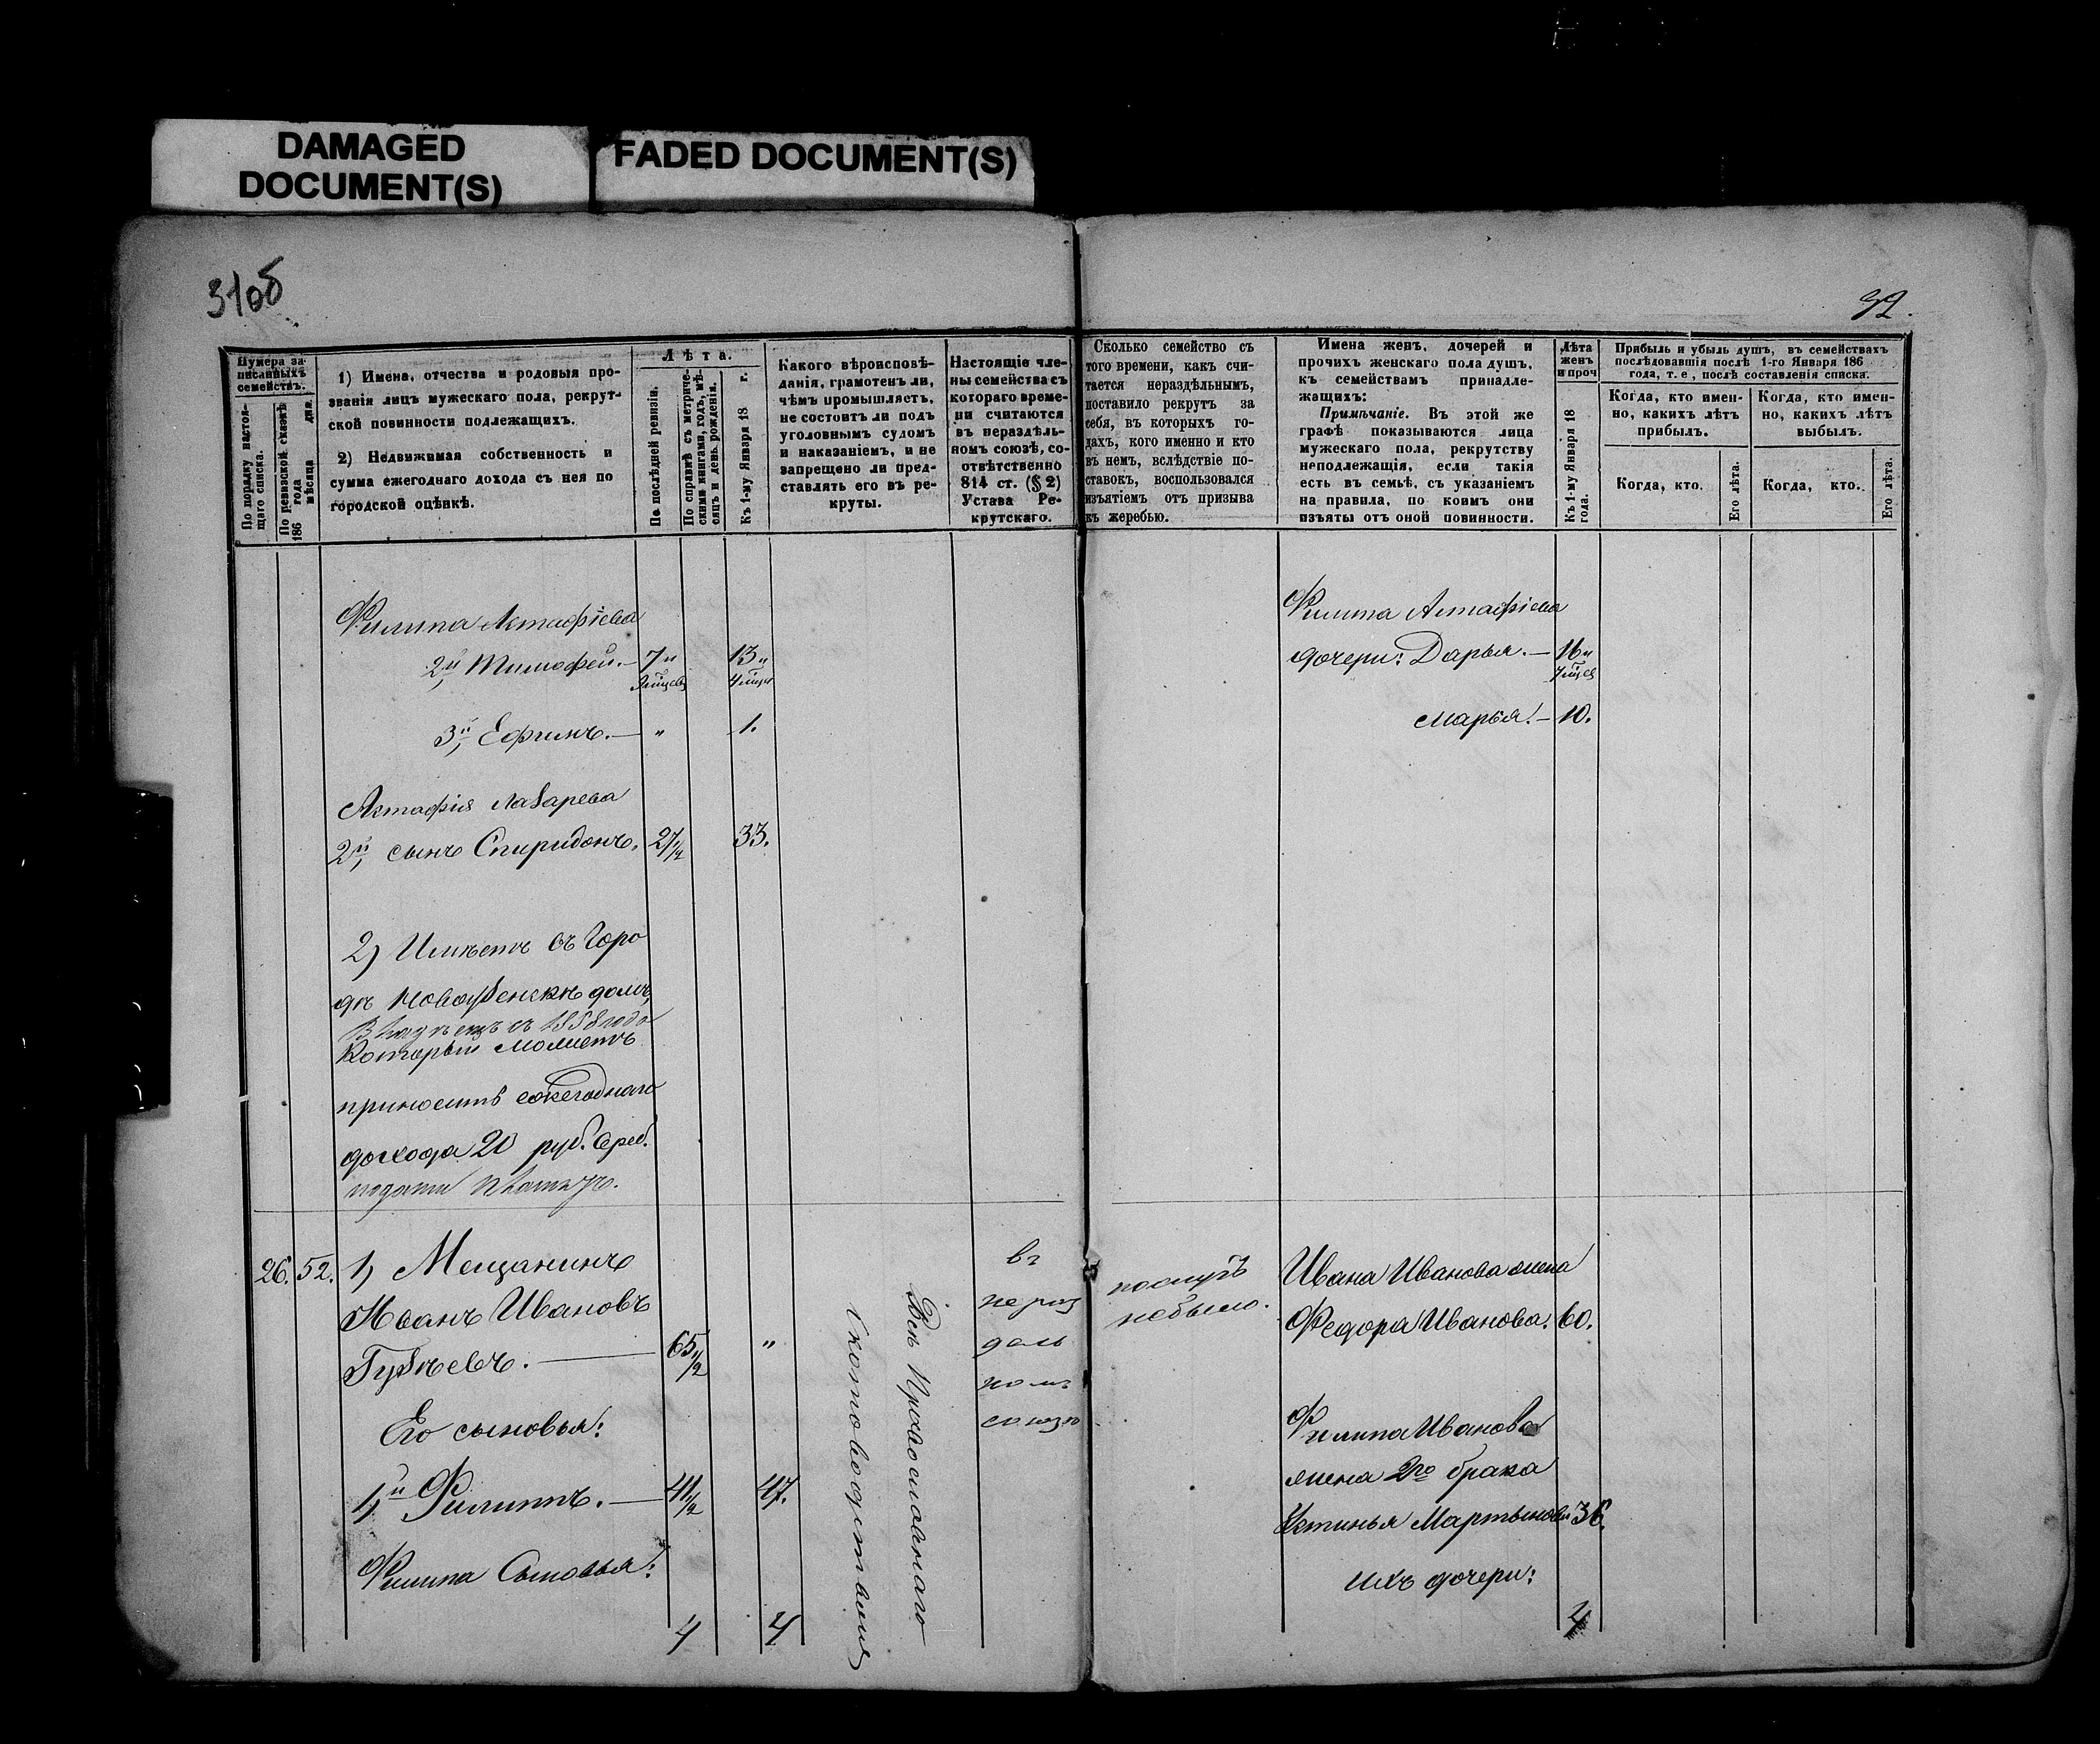 DAMAGED
DOCUMENT(S)
FADED DOCUMENT(S)
31об
32.
Нумера за-
писанныхъ
семействъ.
По порядку настоя-
щаго списка.
По ревизской сказкѣ
186 года мѣсяца дня.
1) Имена, отчества и родовыя про-
званія лицъ мужескаго пола, рекрут-
ской повинности подлежащихъ.
2) Недвижимая собственность и
сумма ежегоднаго дохода съ нея по
городской оцѣнкѣ.
Лѣта.
По послѣдней ревизіи.
По справкѣ съ метриче-
скими книгами, годъ, мѣ-
сяцъ и день рожденія.
Къ 1-му Января 18 г.
Какого вѣроисповѣ-
данія, грамотенъ ли,
чѣмъ промышляетъ,
не состоитъ ли подъ
уголовнымъ судомъ
и наказаніемъ, и не
запрещено ли пред-
ставлять его въ ре-
круты.
Настоящіе чле-
ны семейства съ
котораго време-
ни считаются
въ нераздѣль-
номъ союзѣ, со-
отвѣтственно
814 ст. (§ 2)
Устава Ре-
крутскаго.
Сколько семейство съ
того времени, какъ счи-
тается нераздѣльнымъ,
поставило рекрутъ за
себя, въ которыхъ го-
дахъ, кого именно и кто
въ немъ, вслѣдствіе по-
ставокъ, воспользовался
изъятіемъ отъ призыва
къ жеребью.
Имена женъ, дочерей и
прочихъ женскаго пола душъ,
къ семействамъ принадле-
жащихъ:
Примѣчаніе. Въ этой же
графѣ показываются лица
мужескаго пола, рекрутству
неподлежащія, если такія
есть въ семьѣ, съ указаніемъ
на правила, по коимъ они
изъяты отъ оной повинности.
Лѣта
женъ
и проч
Къ 1-му Января 18
года.
Прибыль и убыль душъ, въ семействахъ
послѣдовавшія послѣ 1-го Января 186
года, т. е, послѣ составленія списка.
Когда, кто имен-
но, какихъ лѣтъ
прибылъ.
Когда, кто имен-
но, какихъ лѣтъ
выбылъ.
Когда, кто.
Его лѣта.
Когда, кто.
Его лѣта.
Филипа Астафіева
2й Тимофей.— 7 и 13 и
4 мѣсяц
3й, Ефимъ.— „ 1.
Астафія Лазарева
2й, сынъ Спиридонъ. 27 1/2 33.
2) Имѣетъ въ Горо
дѣ Новоузенскѣ домъ,
съ 1858 года
который можетъ
приносить ежегоднаго
дохода 20 руб. сереб.
подати
Филипа Астафіева
дочери: Дарья.— 16 и
7 мѣсяц
Марья.— 10.
26. 52. 1, Мещанинъ
Иванъ Ивановъ
Гузѣевъ.— 65 1/2 „
Его сыновья:
1,й Филиппъ.— 41 1/2 47.
Филипа Сыновья:
4 4
Вѣр. Православнаго
скотоводствомъ
въ
нераз
дѣль
номъ
союзѣ
поступъ
небыло.
Ивана Иванова жена
Федора Иванова. 60.
Филипа Иванова
жена 2го брака
Устинья Мартынова 36.
ихъ дочери:
4